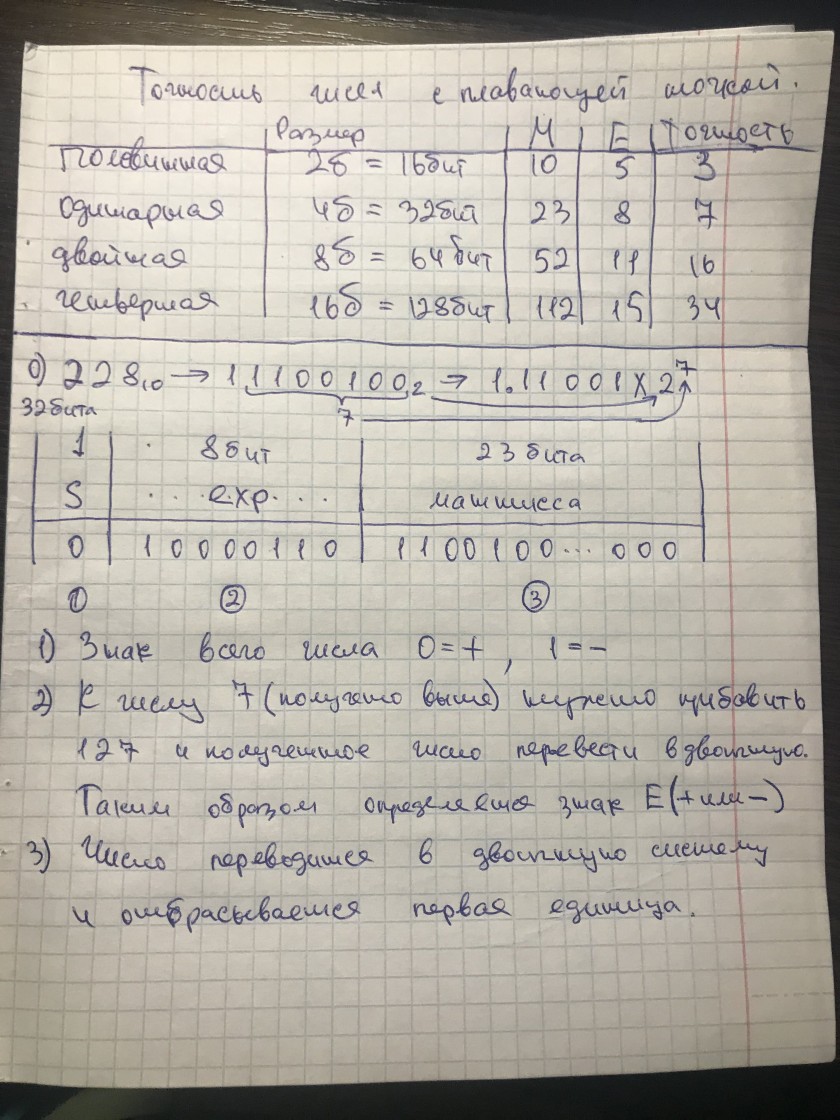 Точность чисел с плавающей точкой.
Размер М Е Точность
Половинная 2б = 16бит 10 5 3
одинарная 4б = 32бит 23 8 7
двойная 8б = 64бит 52 11 16
четверная 16б = 128бит 112 15 34
0) 228₁₀ → 11100100₂ → 1.11001 × 2⁷
7
32бита
1 8бит 23бита
S ..exp.... мантисса
0 10000110 1100100...000
① ② ③
1) Знак всего числа 0=+, 1=-
2) К числу 7 (получено выше) нужно прибавить
127 и полученное число перевести в двоичную.
Таким образом определяется знак Е(+или-)
3) Число переводится в двоичную систему
и отбрасывается первая единица.